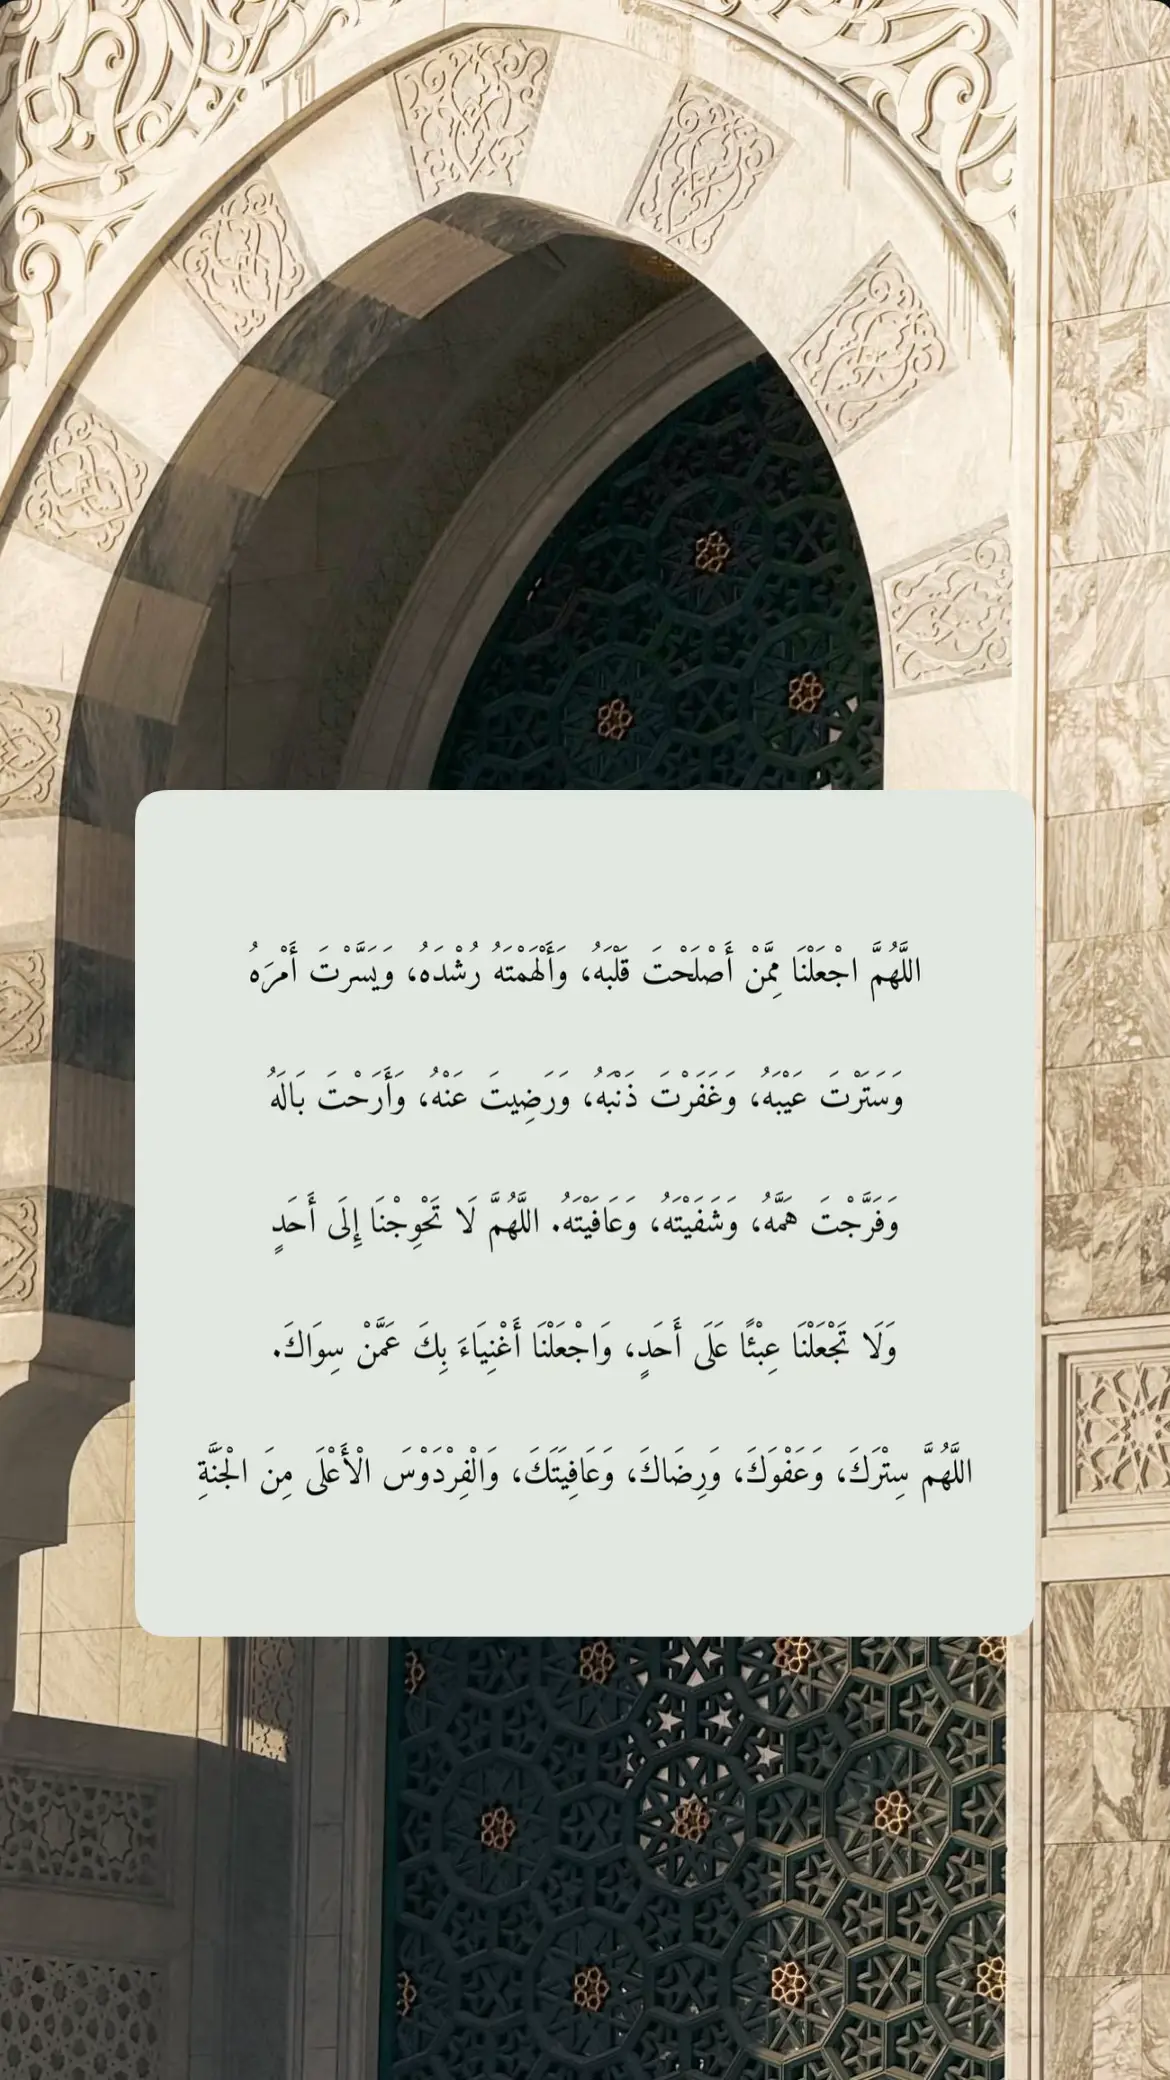 اللَّهُمَّ اجْعَلْنَا مِمَّنْ أَصْلَحْتَ قَلْبَهُ، وَأَلْهَمْتَهُ رُشْدَهُ، وَيَسَّرْتَ أَمْرَهُ
وَسَتَرْتَ عَيْبَهُ، وَغَفَرْتَ ذَنْبَهُ، وَرَضِيتَ عَنْهُ، وَأَرَحْتَ بَالَهُ
وَفَرَّجْتَ هَمَّهُ، وَشَفَيْتَهُ، وَعَافَيْتَهُ. اللَّهُمَّ لَا تَحْوِجْنَا إِلَى أَحَدٍ
وَلَا تَجْعَلْنَا عِبْئًا عَلَى أَحَدٍ، وَاجْعَلْنَا أَغْنِيَاءَ بِكَ عَمَّنْ سِوَاكَ.
اللَّهُمَّ سِتْرَكَ، وَعَفْوَكَ، وَرِضَاكَ، وَعَافِيَتَكَ، وَالْفِرْدَوْسَ الْأَعْلَى مِنَ الْجَنَّةِ